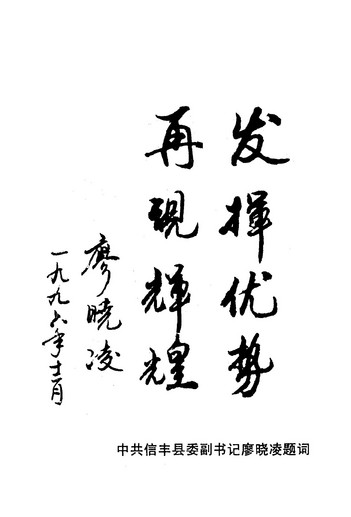 发揮优势
再現輝煌
廖晓凌
一九九六年十二月
中共信丰县委副书记廖晓凌题词